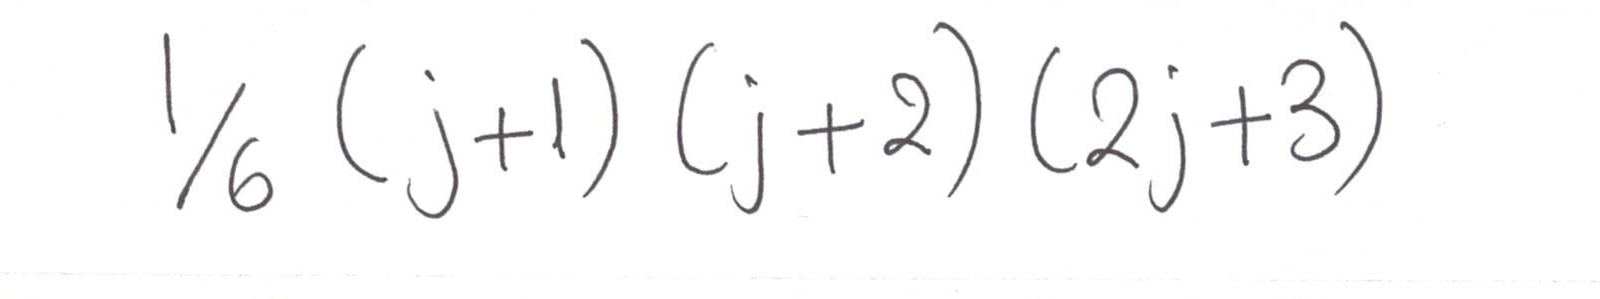 1/6 (j+1) (j+2) (2j+3)